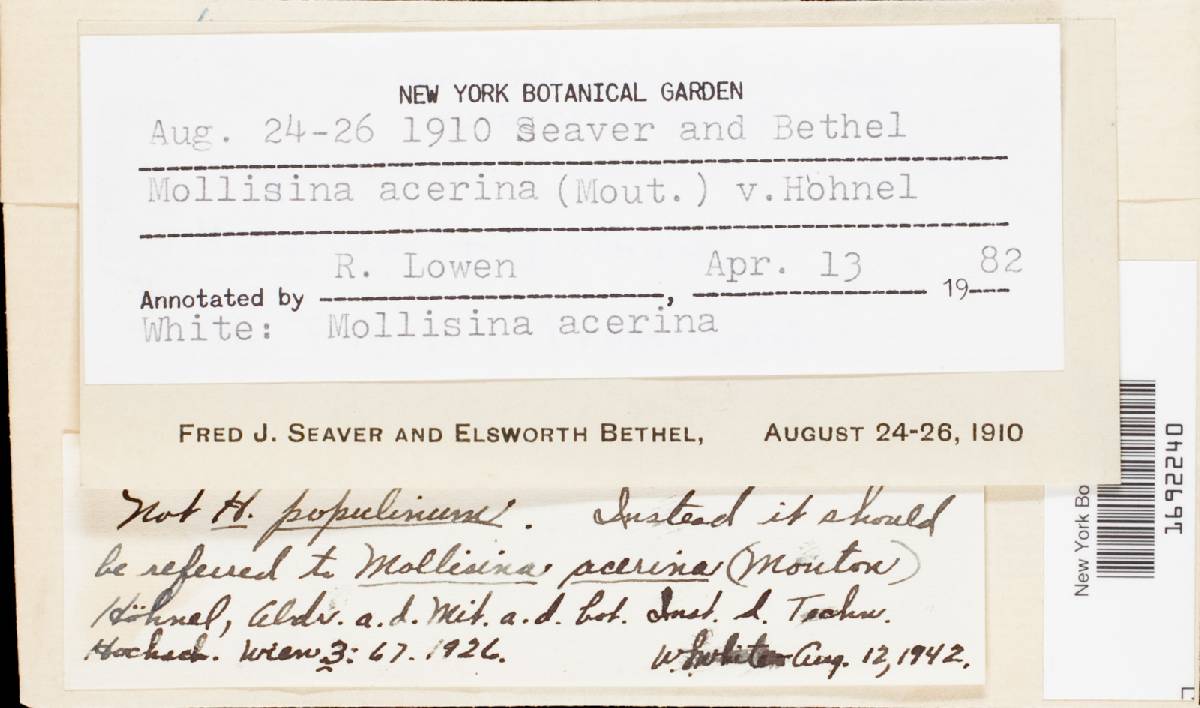 NEW YORK BOTANICAL GARDEN
Aug. 24-26 1910 Seaver and Bethel
Mollisina acerina (Mout.) v.Höhnel
R. Lowen Apr. 13 82
Annotated by , 19
White: Mollisina acerina
FRED J. SEAVER AND ELSWORTH BETHEL, AUGUST 24-26, 1910
Not H. populinum. Instead it should
be referred to Mollisina acerina (Mouton)
Höhnel, a.d. Mit. a.d. bot. Inst. d. Techn.
Hochsch. Wien 3: 67. 1926. W.L. White Aug. 12, 1942.
New York Bo
1692240